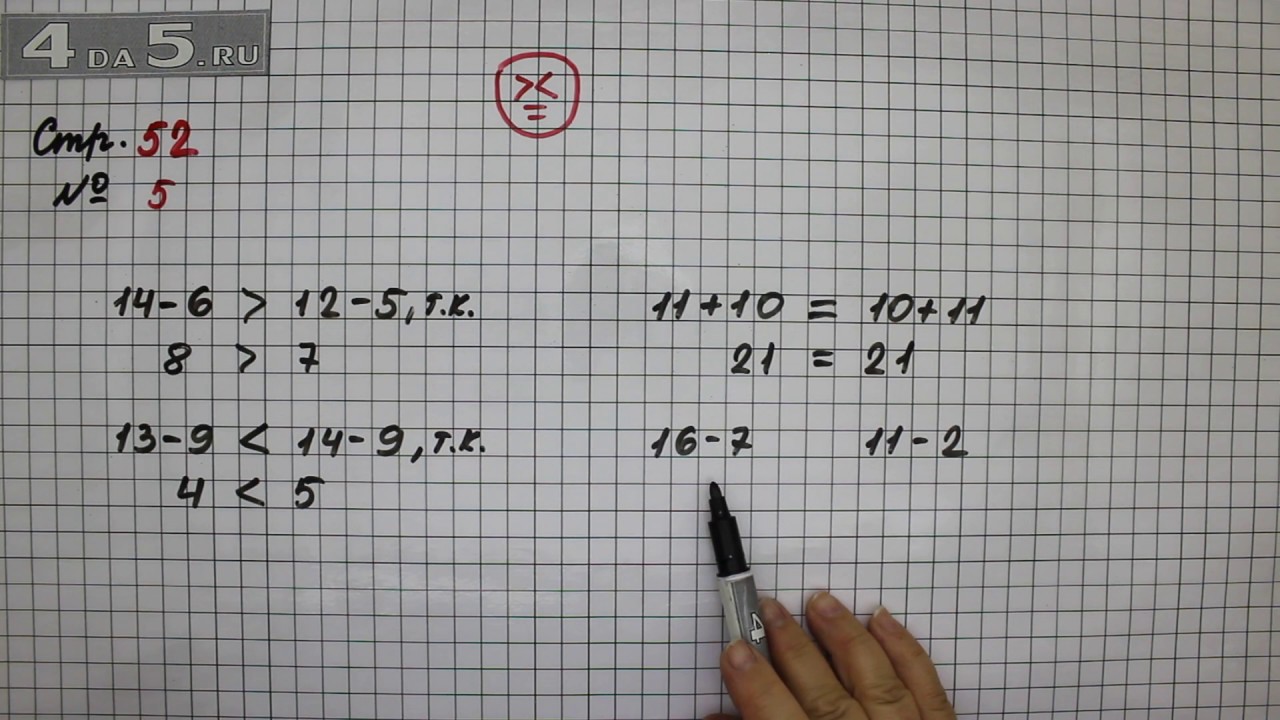 4 DA 5.RU
><
=
Стр. 52
№ 5
14-6 > 12-5, т.к.
8 > 7
13-9 < 14-9, т.к.
4 < 5
11+10 = 10+11
21 = 21
16-7 11-2
4